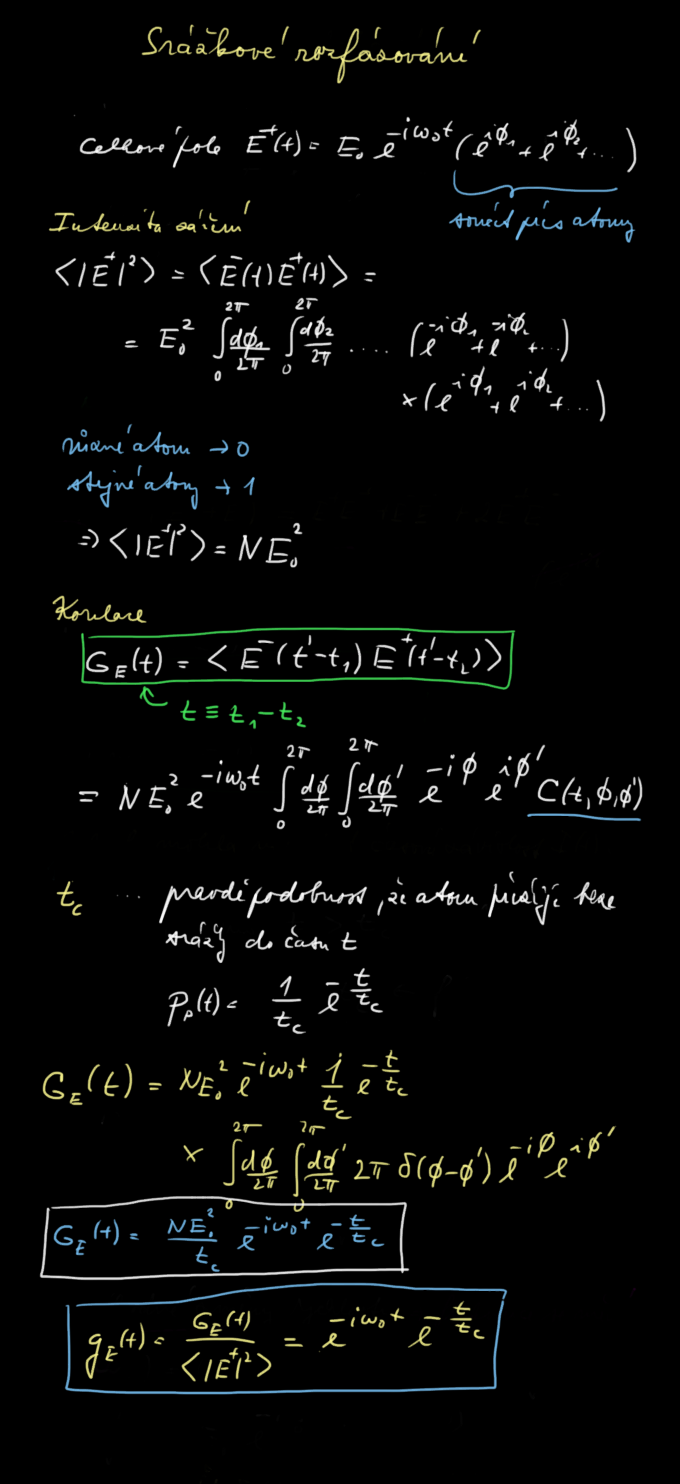 Srážkové rozfázování
Celkové pole E⁺(t) = E₀ e^{-iω₀t} (e^{iϕ₁} + e^{iϕ₂} + ...)
součet přes atomy
Intenzita záření
⟨|E⁺|²⟩ = ⟨E⁻(t) E⁺(t)⟩ =
= E₀² ∫₀^{2π} dϕ₁/2π ∫₀^{2π} dϕ₂/2π .... (e^{-iϕ₁} + e^{-iϕ₂} + ...)
× (e^{iϕ₁} + e^{iϕ₂} + ...)
různé atomy → 0
stejné atomy → 1
⇒ ⟨|E⁺|²⟩ = N E₀²
Korelace
G_E(t) = ⟨E⁻(t'-t₁) E⁺(t'-t₂)⟩
t ≡ t₁ - t₂
= N E₀² e^{-iω₀t} ∫₀^{2π} dϕ/2π ∫₀^{2π} dϕ'/2π e^{-iϕ} e^{iϕ'} C(t, ϕ, ϕ')
t_c ... pravděpodobnost, že atom přežije beze
srážky do času t
P_p(t) = 1/t_c e^{-t/t_c}
G_E(t) = N E₀² e^{-iω₀t} 1/t_c e^{-t/t_c}
× ∫₀^{2π} dϕ/2π ∫₀^{2π} dϕ'/2π 2π δ(ϕ-ϕ') e^{-iϕ} e^{iϕ'}
G_E(t) = N E₀²/t_c e^{-iω₀t} e^{-t/t_c}
g_E(t) = G_E(t)/⟨|E⁺|²⟩ = e^{-iω₀t} e^{-t/t_c}